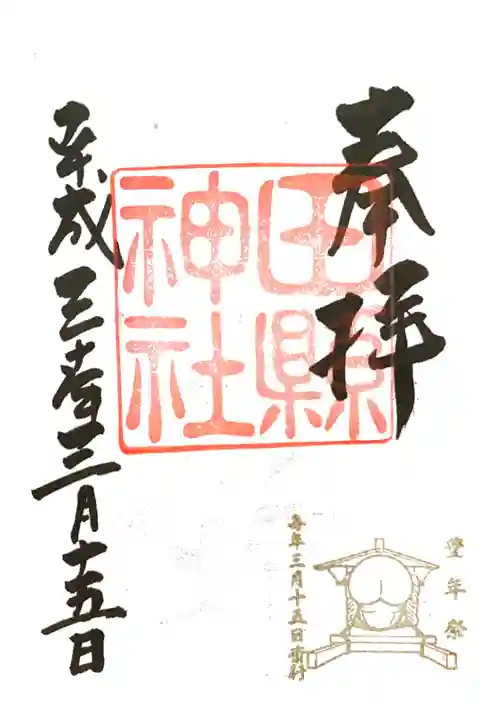 奉拝
田縣神社
平成三十年三月十五日
豊年祭
毎年三月十五日斎行